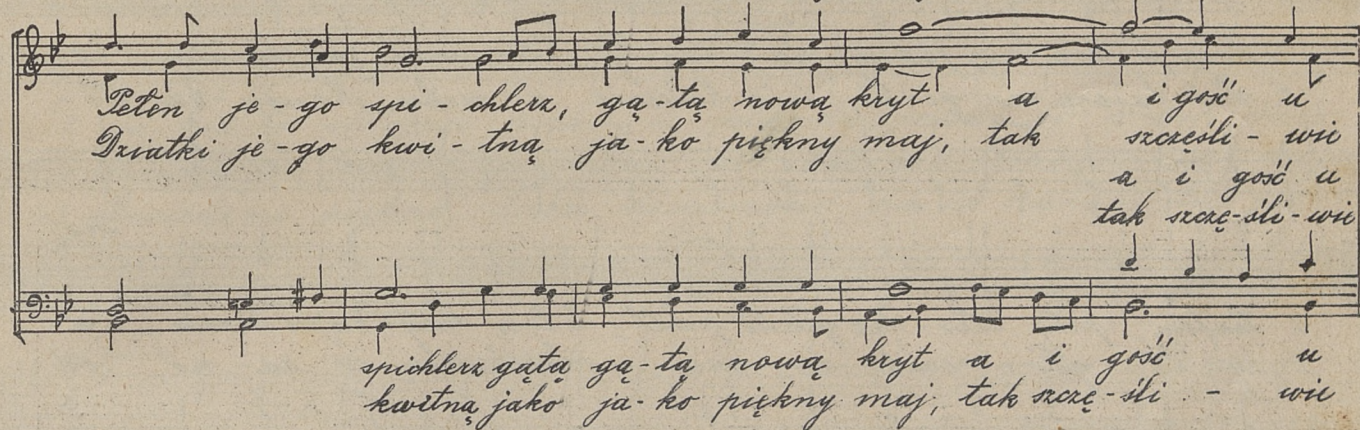 Pełen je-go spi-chlerz, gą-tą nową kryt a i gość u
Dziatki je-go kwi-tną ja-ko piękny maj, tak szczęśli-wie
a i gość u
tak szczę-śli-wie
spichlerz gątą gą-tą nową kryt a i gość u
kwitną jako ja-ko piękny maj, tak szczę-śli - wie